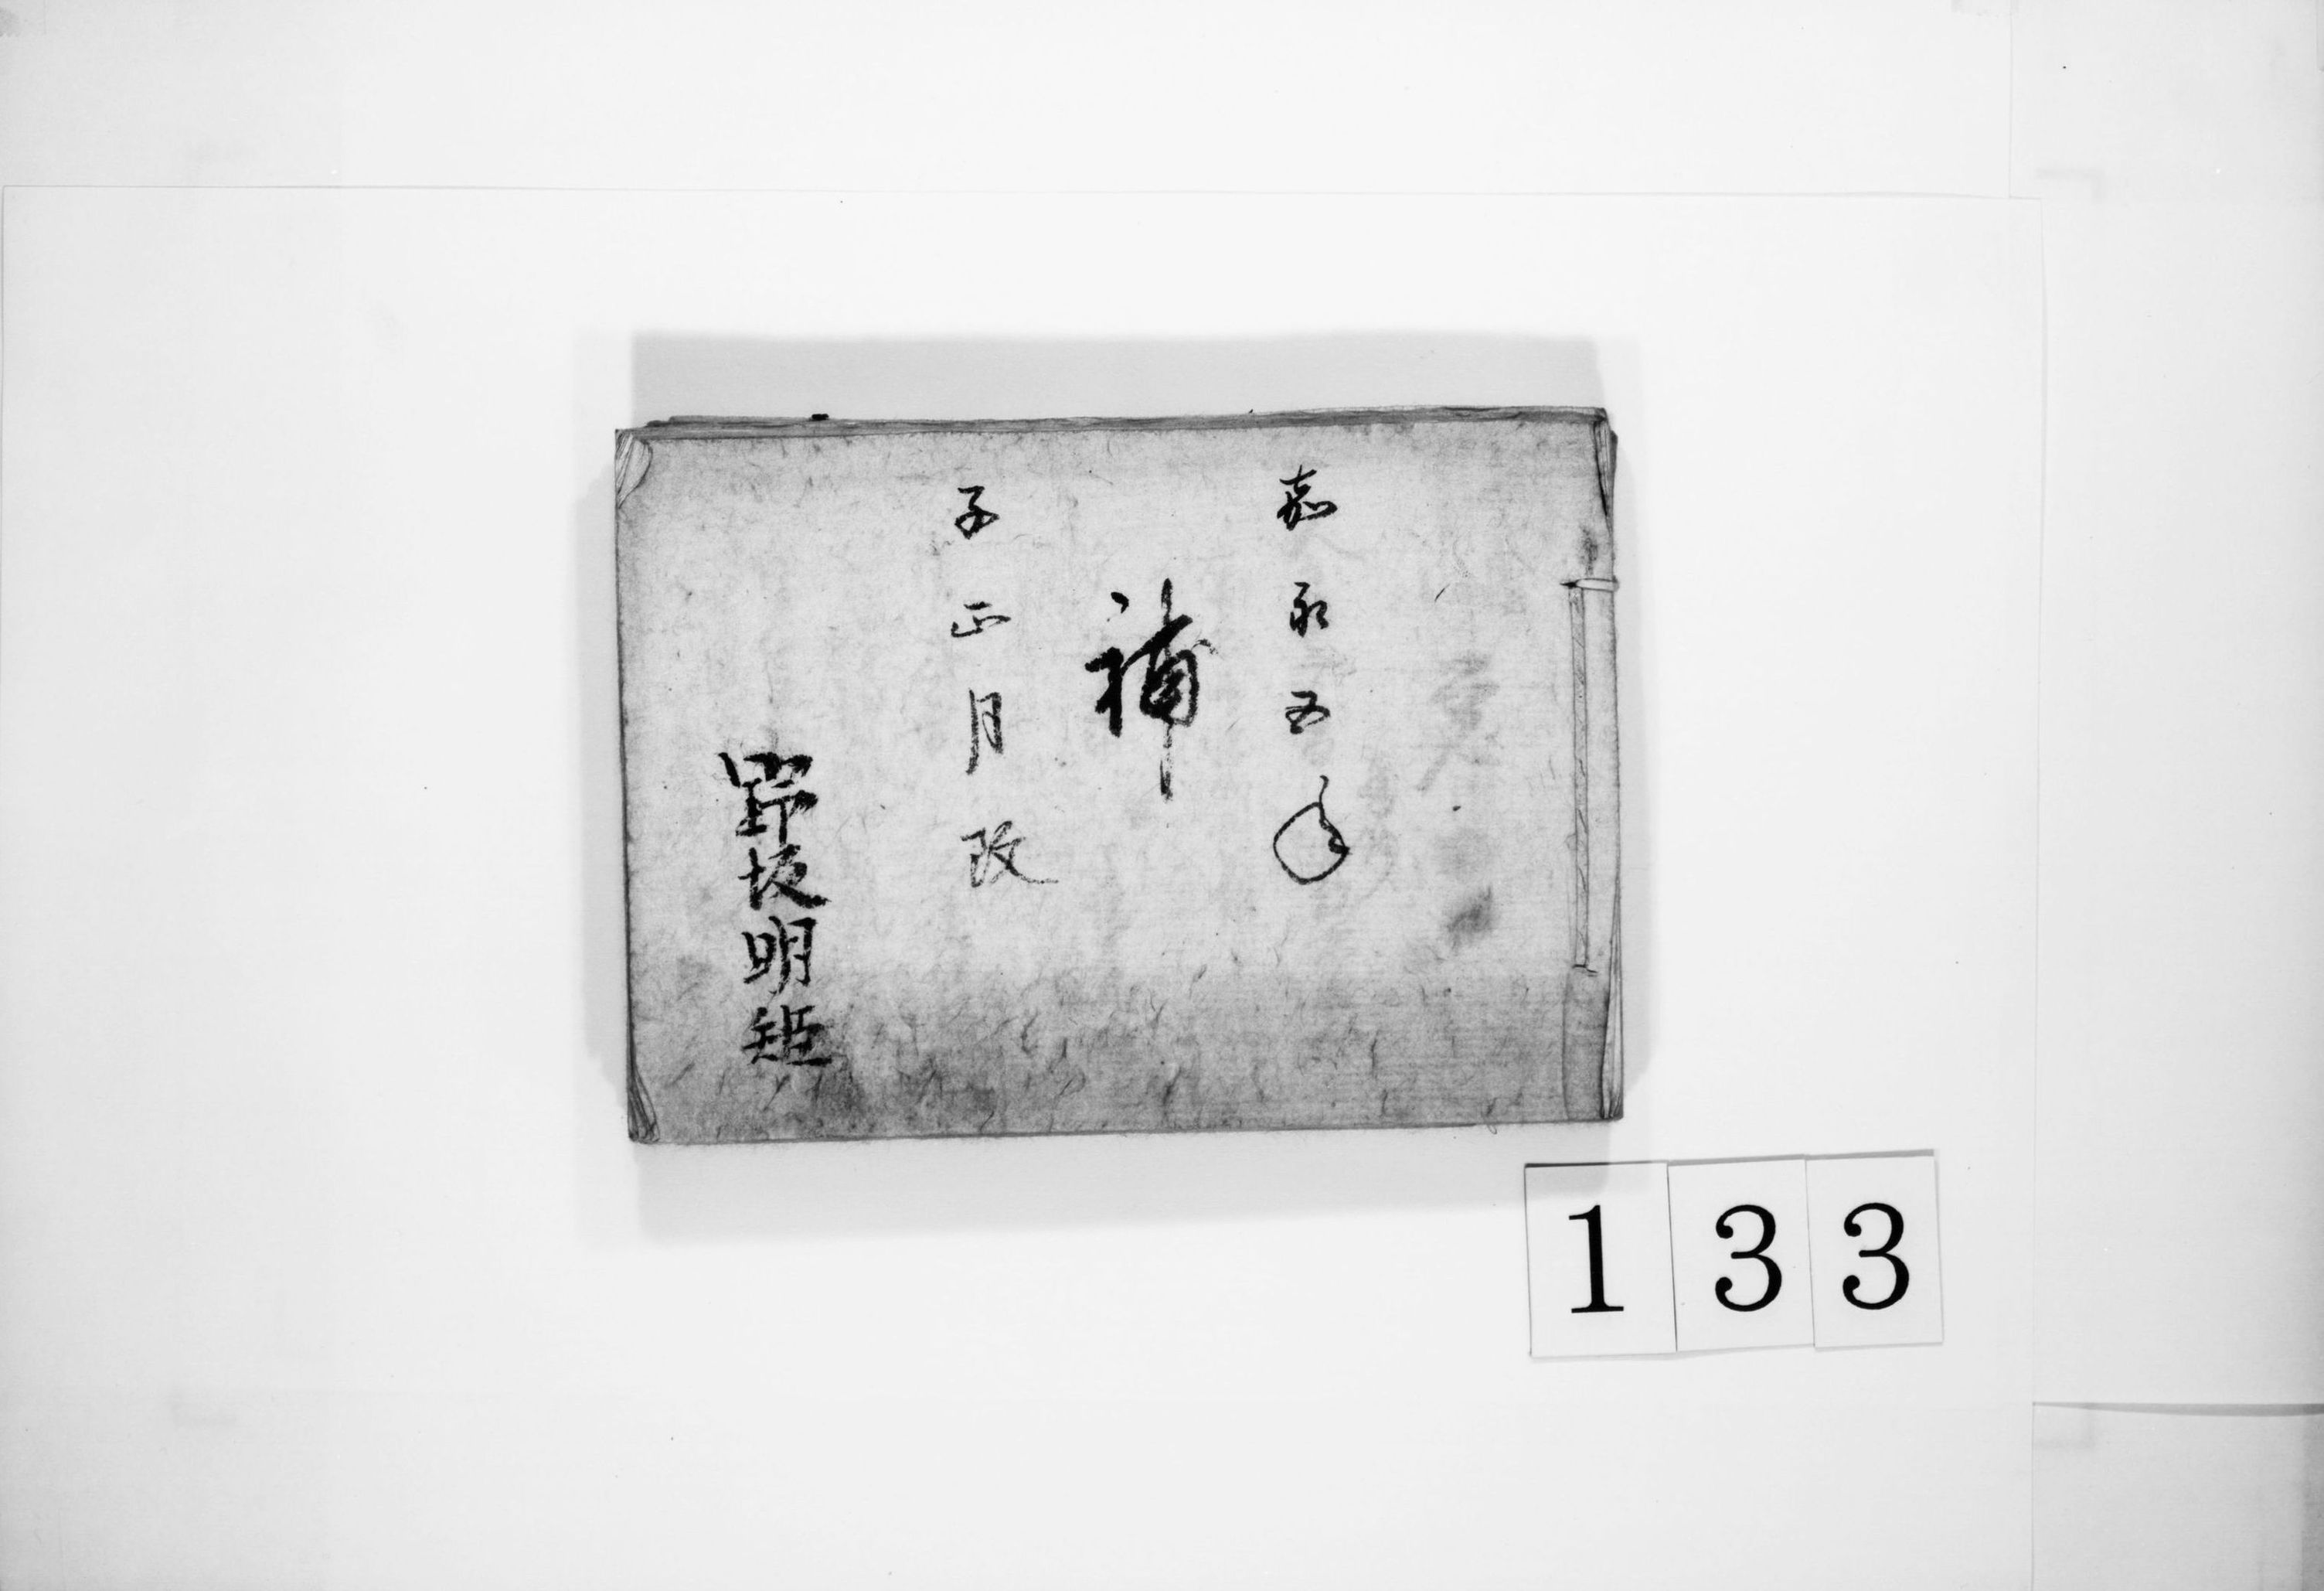 嘉永五年
補
子正月改
野坂明矩
133